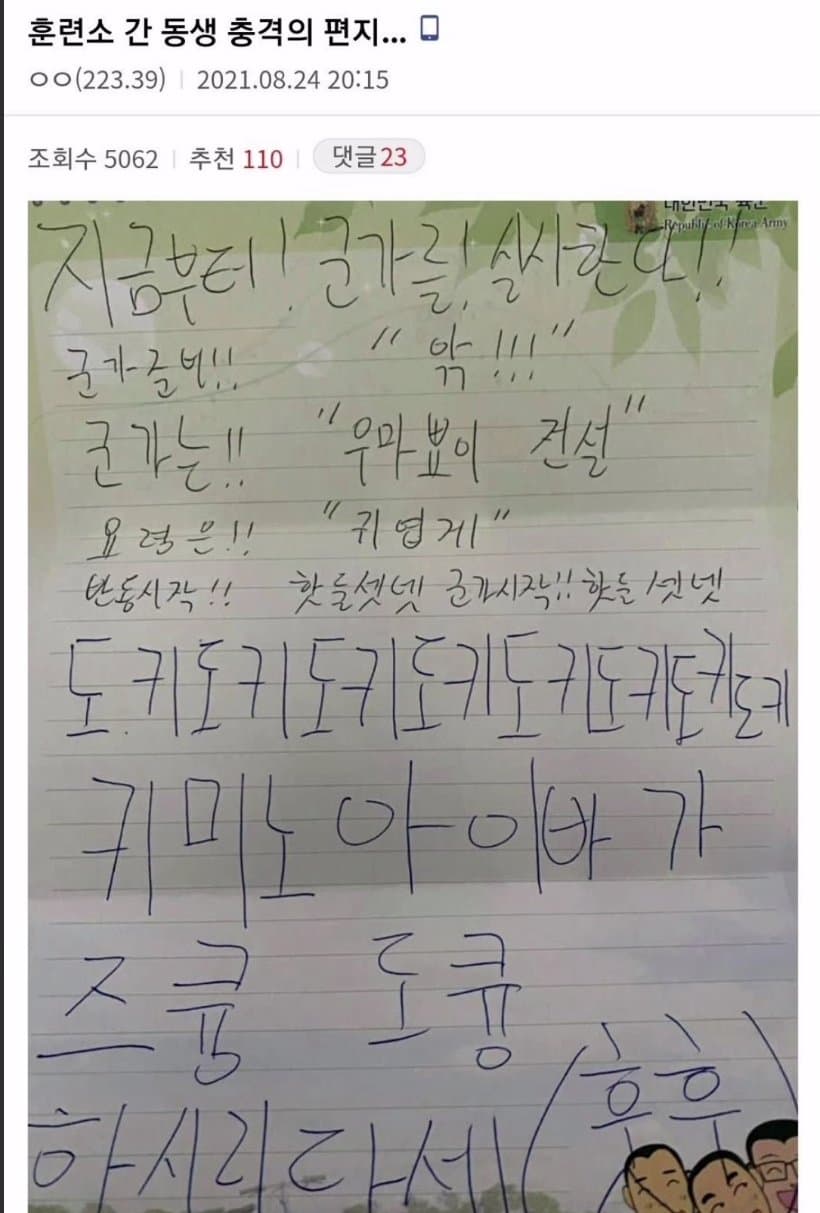 훈련소 간 동생 충격의 편지...
ㅇㅇ(223.39) | 2021.08.24 20:15
조회수 5062 | 추천 110 | 댓글 23
대한민국 육군
Republic of Korea Army
지금부터! 군가를! 실시한다!!
군가준비!! "악!!!"
군가는!! "우마뾰이 전설"
요령은!! "귀엽게"
반동시작!! 핫둘셋넷 군가시작!! 핫둘셋넷
도키도키도키도키도키도키도키도키
키미노아이바가
즈큥 도큥
하시리다세 (후후)